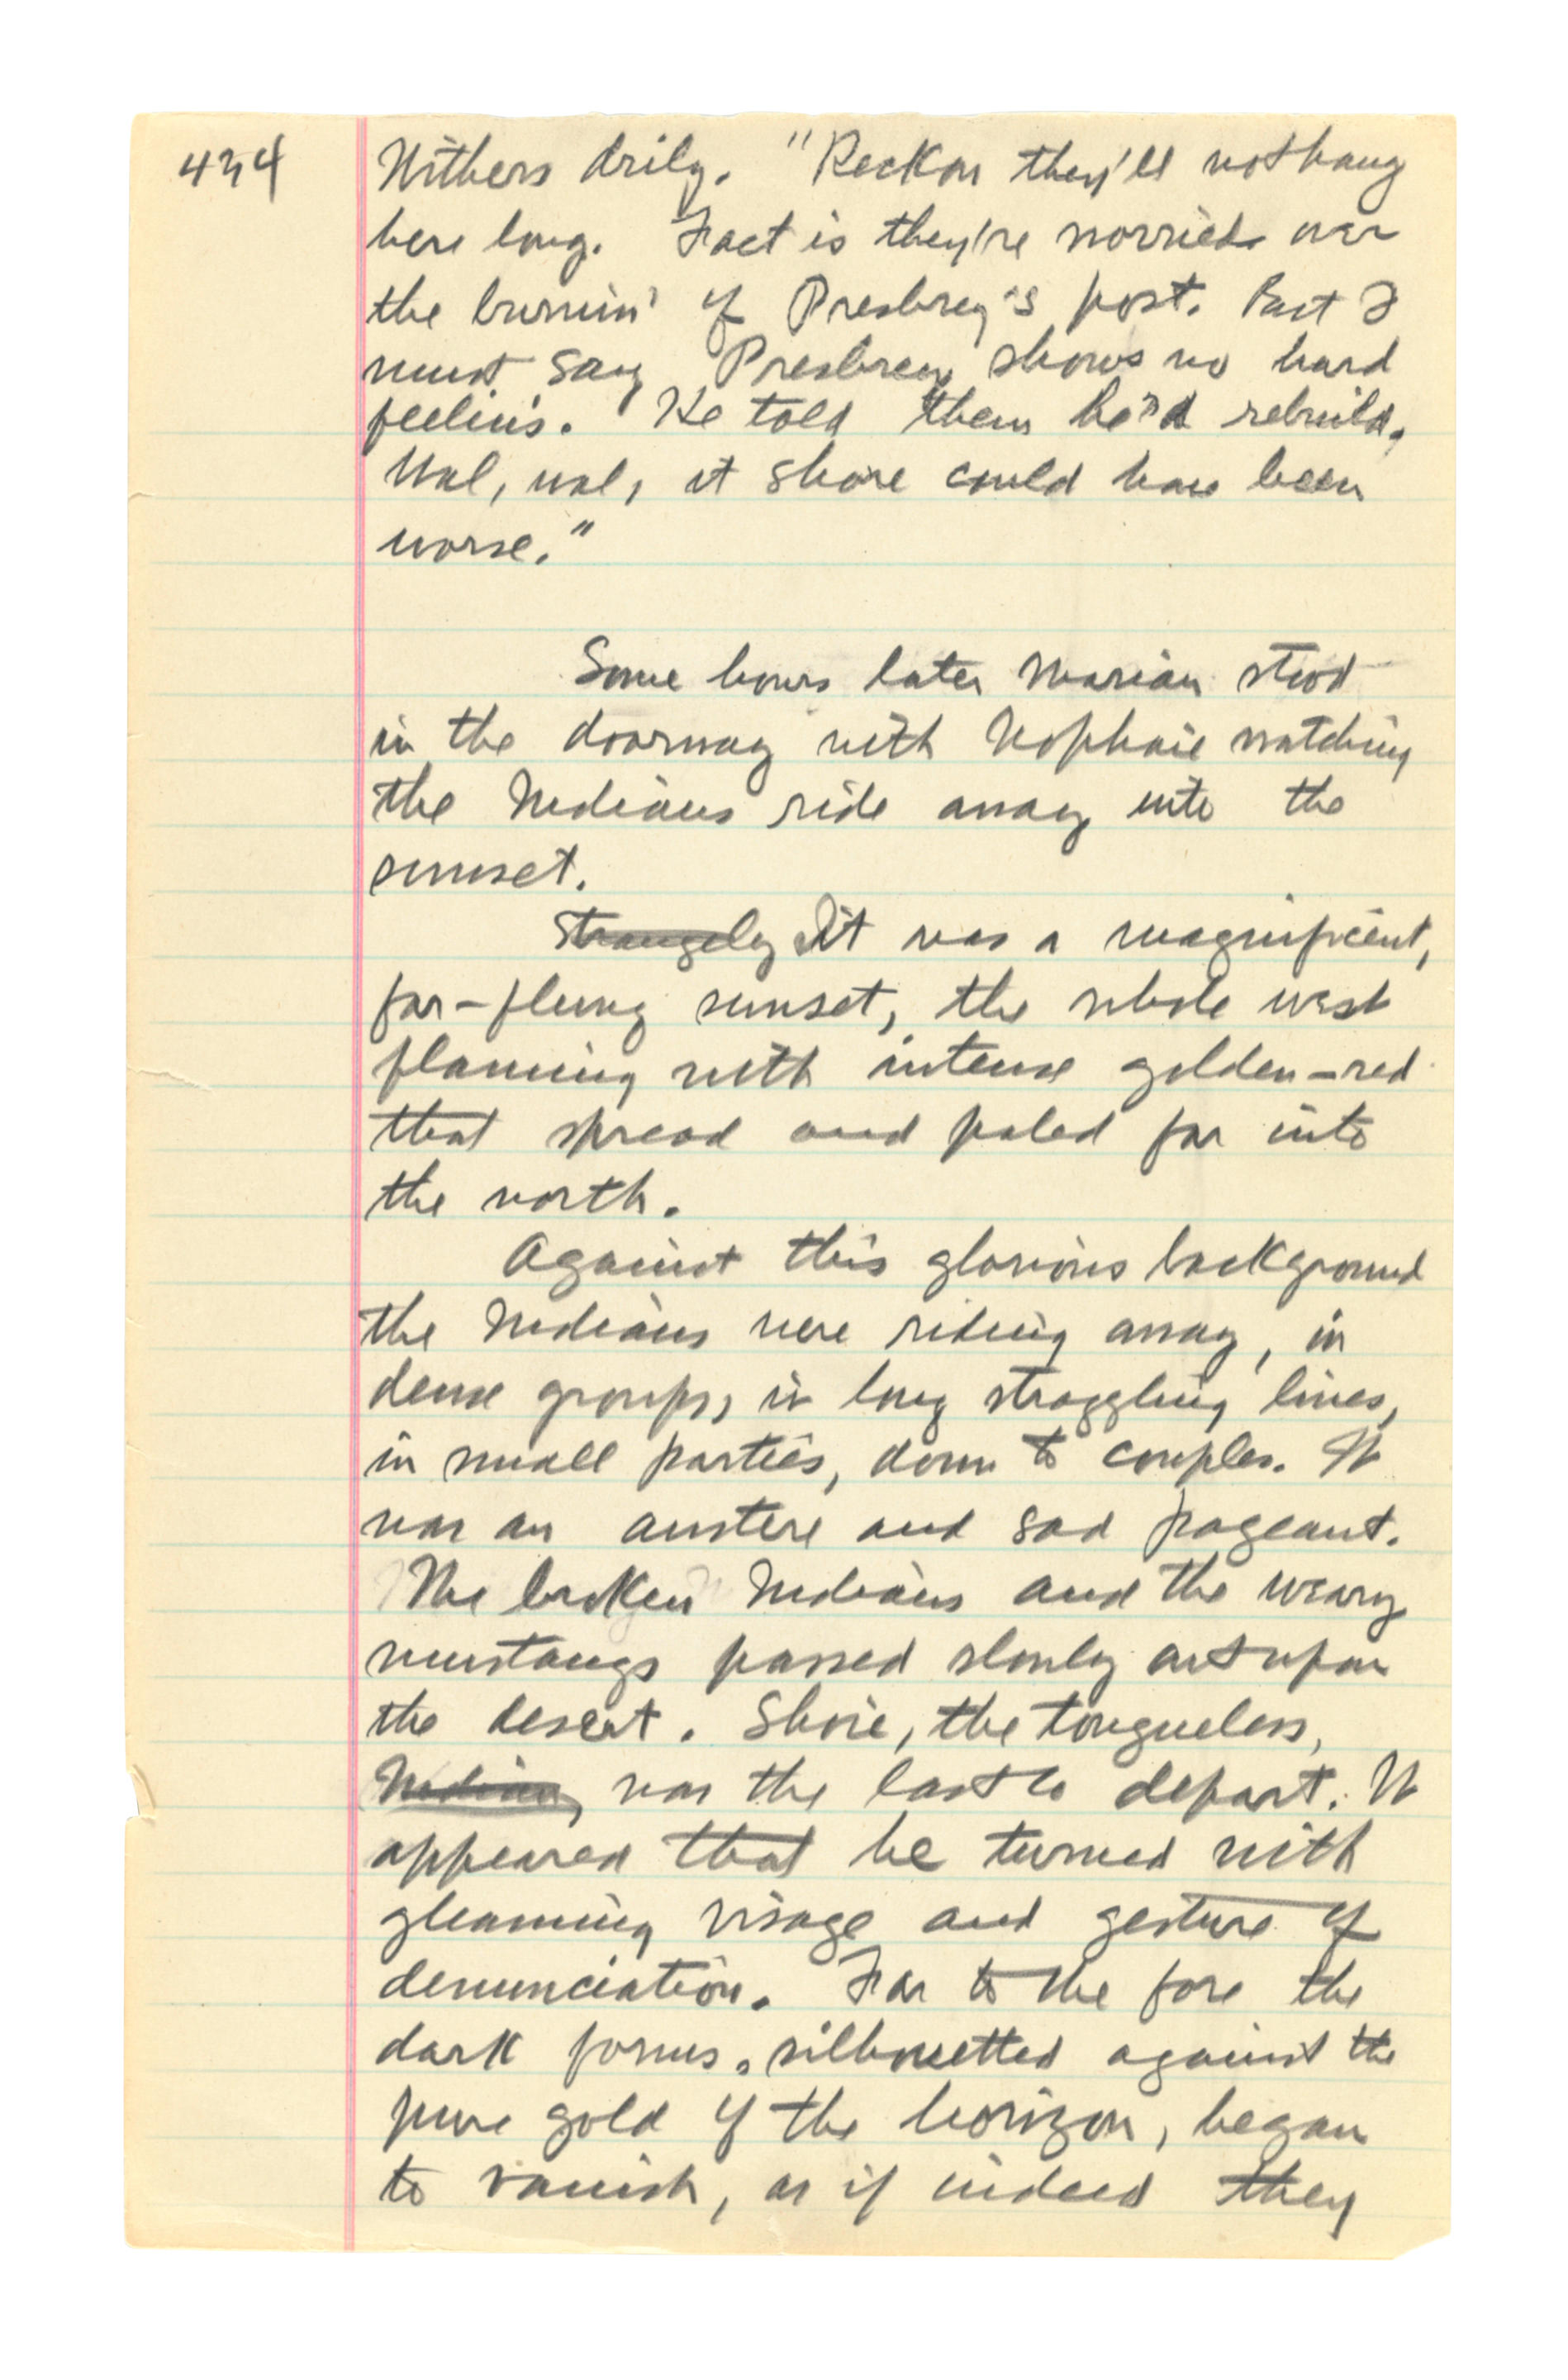 434
Withers drily. "Reckon they'll not hang
here long. Fact is they're worried over
the burnin' of Presbrey's post. But I
must say Presbrey shows no hard
feelin's. He told them he'd rebuild.
Wal, wal, it shore could have been
worse."
Some hours later Marian stood
in the doorway with Nophaie watching
the Indians ride away into the
sunset.
Strangely It was a magnificent,
far-flung sunset, the whole west
flaming with intense golden-red
that spread and paled far into
the north.
Against this glorious background
the Indians were riding away, in
dense groups, in long straggling lines,
in small parties, down to couples. It
was an austere and sad pageant.
The broken Indians and the weary
mustangs passed slowly out upon
the desert. Shoie, the tongueless,
Indian, was the last to depart. It
appeared that he turned with
gleaming visage and gesture of
denunciation. Far to the fore the
dark forms, silhouetted against the
pure gold of the horizon, began
to vanish, as if indeed they